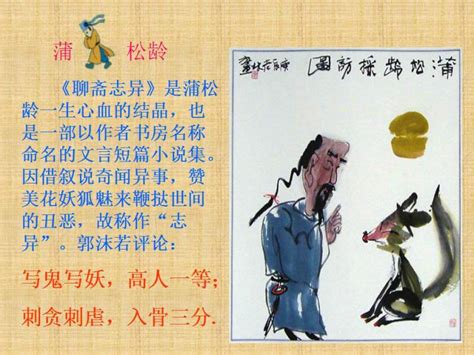 蒲 松龄
《聊斋志异》是蒲松
龄一生心血的结晶，也
是一部以作者书房名称
命名的文言短篇小说集。
因借叙说奇闻异事，赞
美花妖狐魅来鞭挞世间
的丑恶，故称作“志
异”。郭沫若评论：
写鬼写妖，高人一等；
刺贪刺虐，入骨三分.
蒲松龄採访图